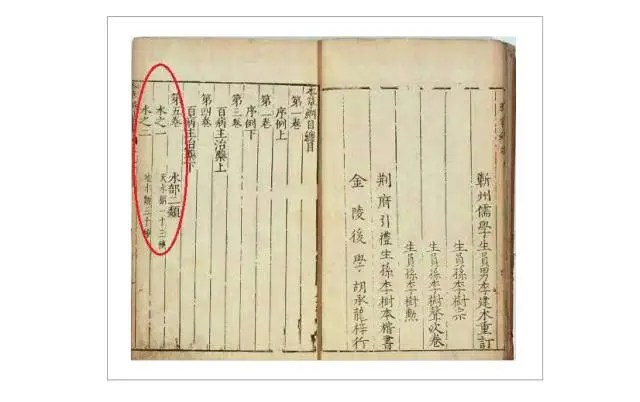 蘄州儒學生員男李建木重訂
生員孫李樹宗
生員孫李樹聲次卷
生員孫李樹勳
荆府引禮生孫李樹本楷書
金陵後學胡承龍梓行
本草綱目總目
第一卷
序例上
第二卷
序例下
第三卷
百病主治藥上
第四卷
百病主治藥下
第五卷 水部二類
水之一 天水類一十三種
水之二 地水類三十種